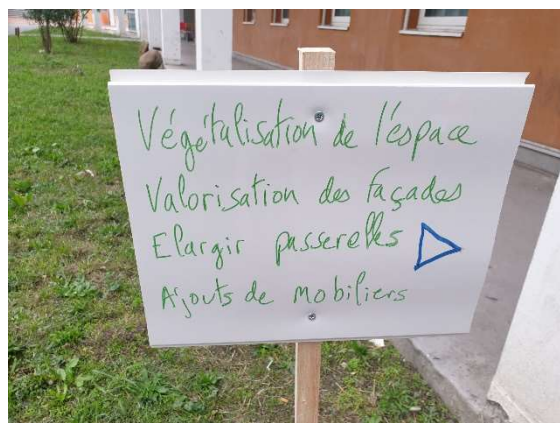 Végétalisation de l'espace
Valorisation des façades
Elargir passerelles
Ajouts de mobiliers